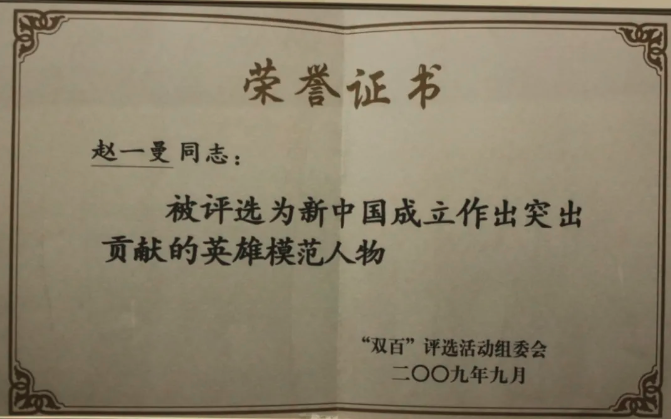 荣誉证书
赵一曼同志：
被评选为新中国成立作出突出
贡献的英雄模范人物
“双百”评选活动组委会
二〇〇九年九月